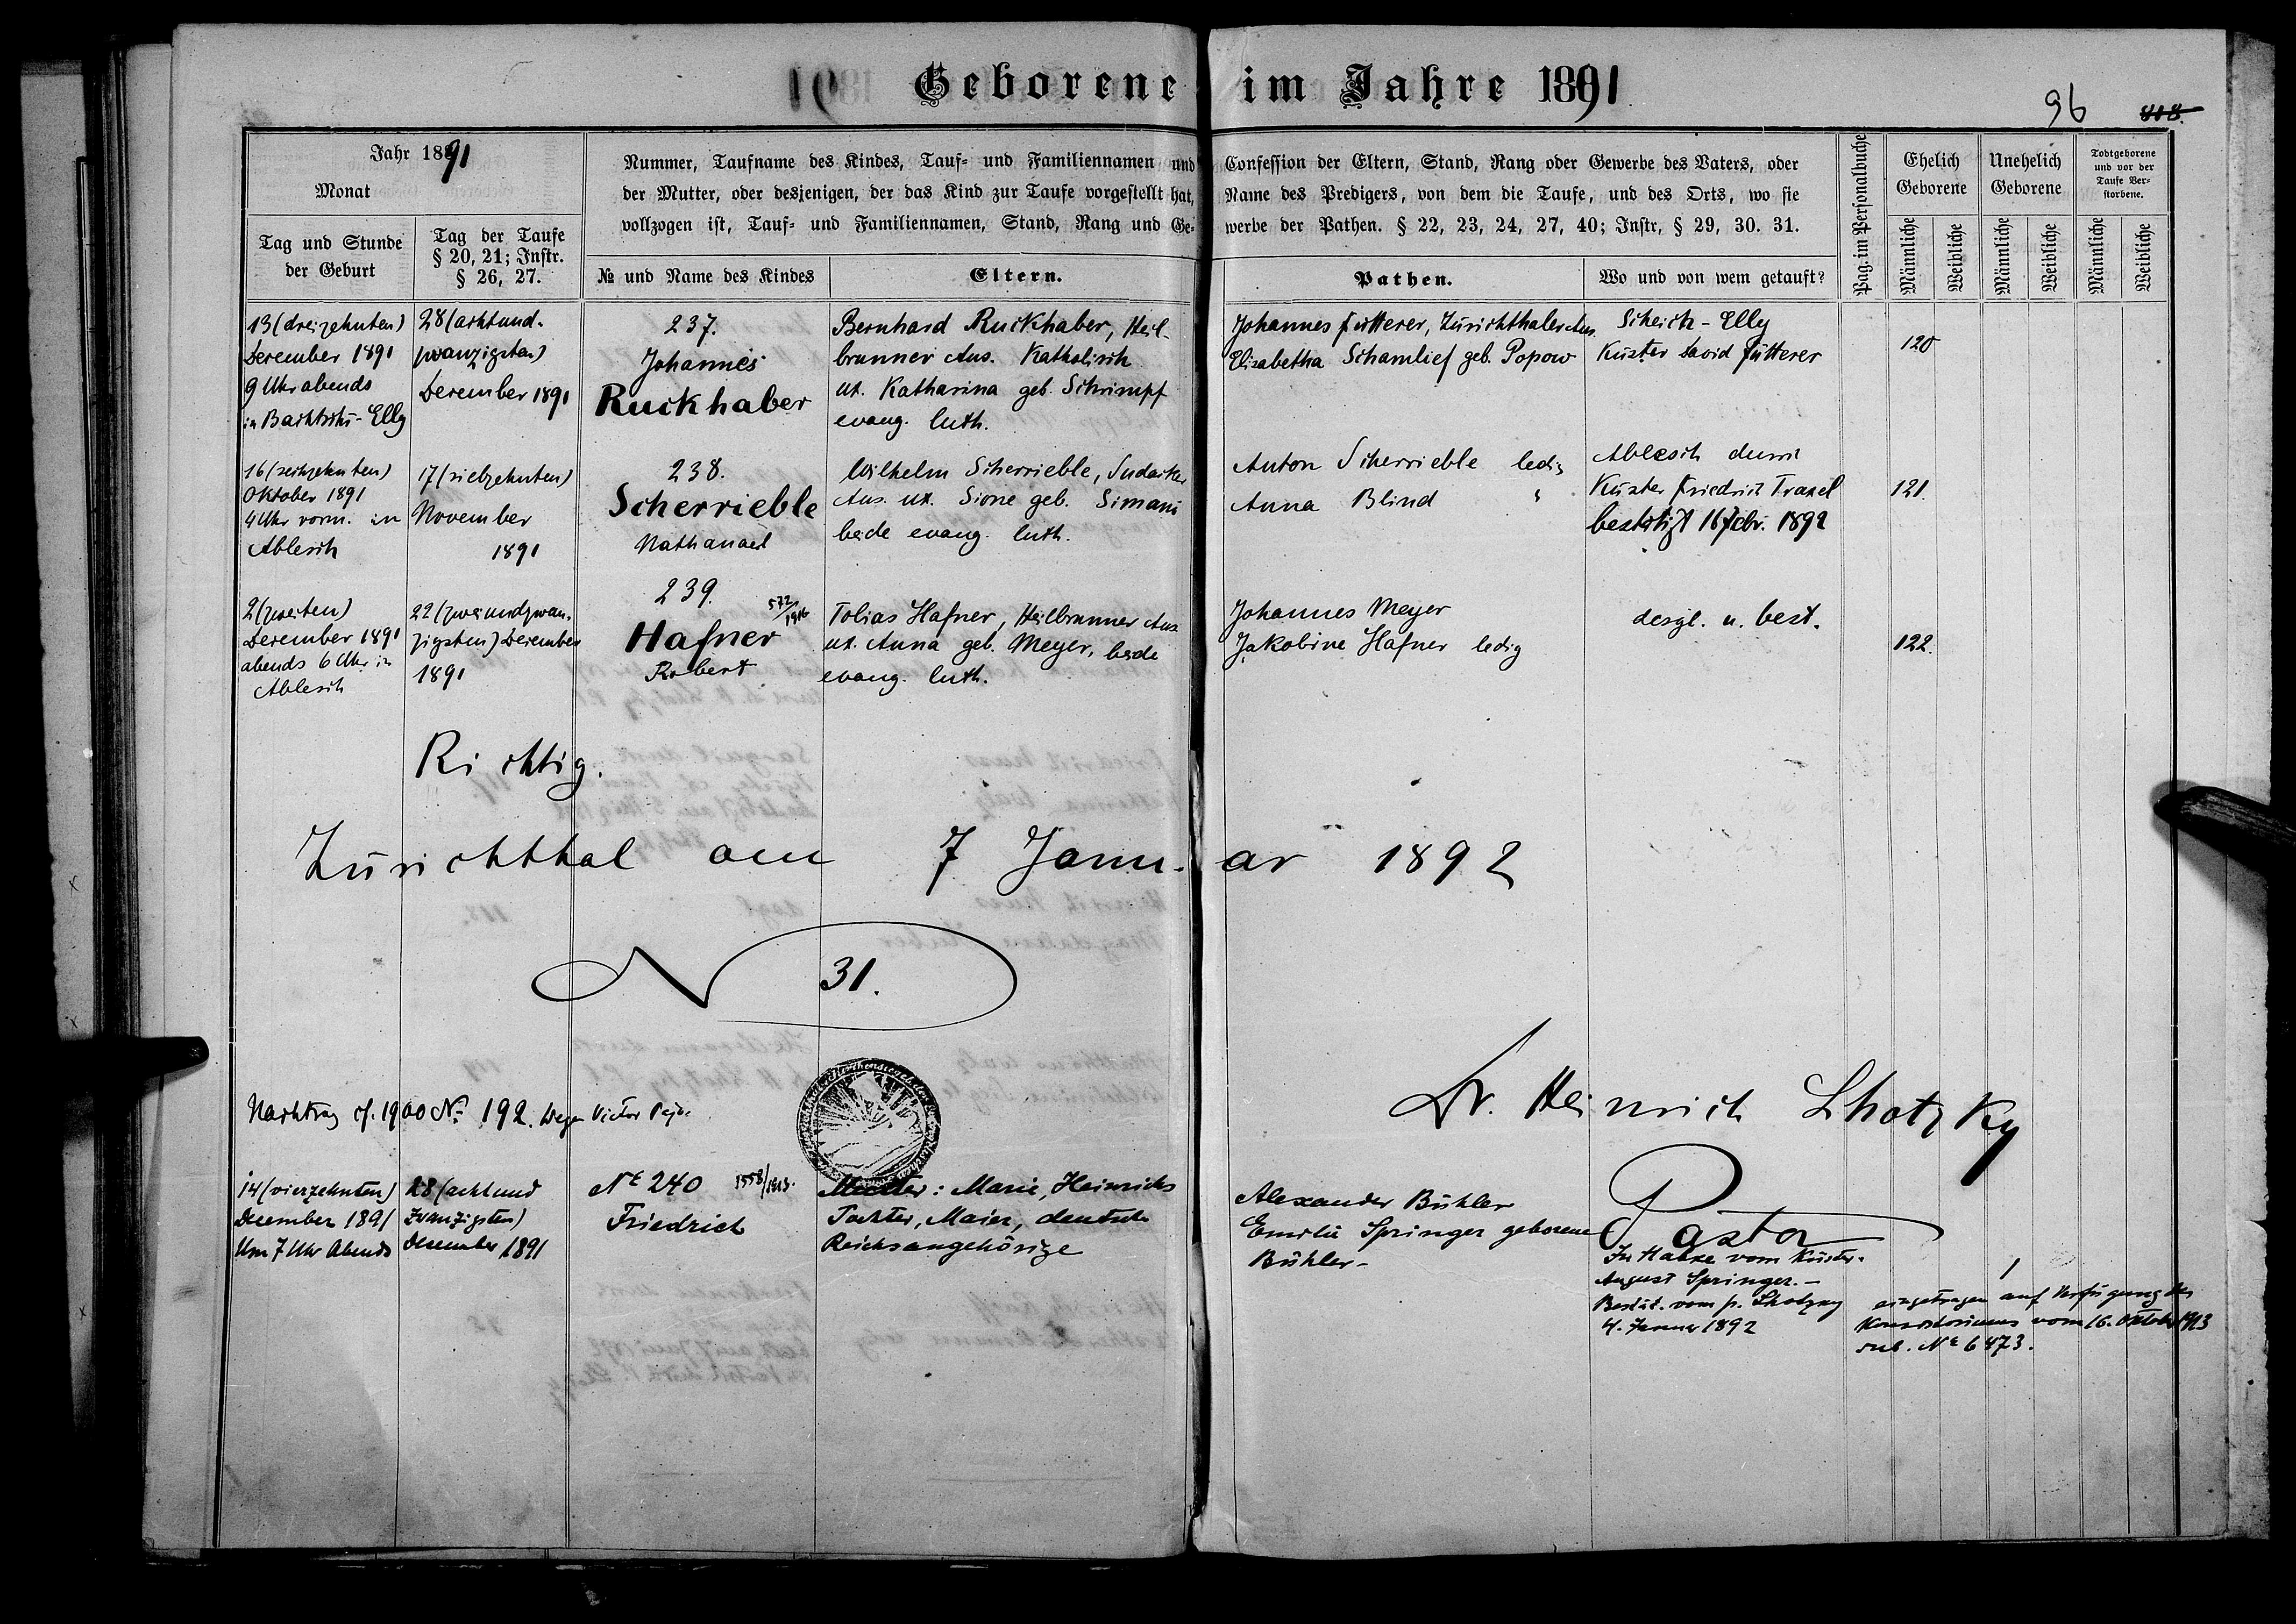 Geborene im Jahre 1891
96
Jahr 1891
Monat
Tag und Stunde
der Geburt
Tag der Taufe
§ 20, 21; Instr.
§ 26, 27.
Nummer, Taufname des Kindes, Tauf- und Familiennamen und Confession der Eltern, Stand, Rang oder Gewerbe des Vaters, oder
der Mutter, oder desjenigen, der das Kind zur Taufe vorgestellt hat, Name des Predigers, von dem die Taufe, und des Orts, wo sie
vollzogen ist, Tauf- und Familiennamen, Stand, Rang und Gewerbe der Pathen. § 22, 23, 24, 27, 40; Instr, § 29, 30. 31.
№ und Name des Kindes
Eltern.
Pathen.
Wo und von wem getauft?
Pag. im Personalbuche
Ehelich
Geborene
Unehelich
Geborene
Todtgeborene
und vor der
Taufe Ver-
storbene.
Männliche
Weibliche
Männliche
Weibliche
Männliche
Weibliche
13 (dreizehnten)
December 1891
9 Uhr abends
in Bachtschi-Elly
28 (achtund-
zwanzigsten)
December 1891
237.
Johannes
Ruckhaber
Bernhard Ruckhaber, Heil-
brunner Ans. Katholisch
ux. Katharina geb. Schrimpf
evang. luth.
Johannes Fütterer, Zürichthaler Ans.
Elisabetha Schamlief geb. Popow
Scheich-Elly
Küster David Fütterer
120
16 (sechzehnten)
Oktober 1891
4 Uhr vorm. in
Ablesch
17 (siebzehnten)
November
1891
238.
Scherrieble
Nathanael
Wilhelm Scherrieble, Sudaker
Ans. ux. Sione geb. Simani
beide evang. luth.
Anton Scherrieble ledig
Anna Blind "
Ablesch durch
Küster Friedrich Traxel
bestätigt 16 Febr. 1892
121.
2 (zweiten)
December 1891
abends 6 Uhr in
Ablesch
22 (zweiundzwan-
zigsten) December
1891
239.
572/1916
Hafner
Robert
Tobias Hafner, Heilbrunner Ans
ux. Anna geb. Meyer, beide
evang. luth.
Johannes Meyer
Jakobine Hafner ledig
desgl. u. best.
122.
Richtig.
Zürichthal am 7 Janu-ar 1892
N 31.
Dr. Heinrich Lhotzky
Pastor
Nachtrag cf. 1900 № 192. Victor
14 (vierzehnten)
December 1891
Um 7 Uhr Abends
28 (achtund
zwanzigsten)
December 1891
№ 240 1558/1913.
Friedrich
Mutter: Marie, Heinrichs
Tochter, Maier, deutsche
Reichsangehörige
Alexander Bühler
Emilie Springer geborene
Bühler-
Im Hause vom Küster-
August Springer.-
Bestät. vom p. Lhotzky
4. Januar 1892
1
eingetragen auf Verfügung des
Konsistoriums vom 16. Oktober 1913
sub. № 6473.